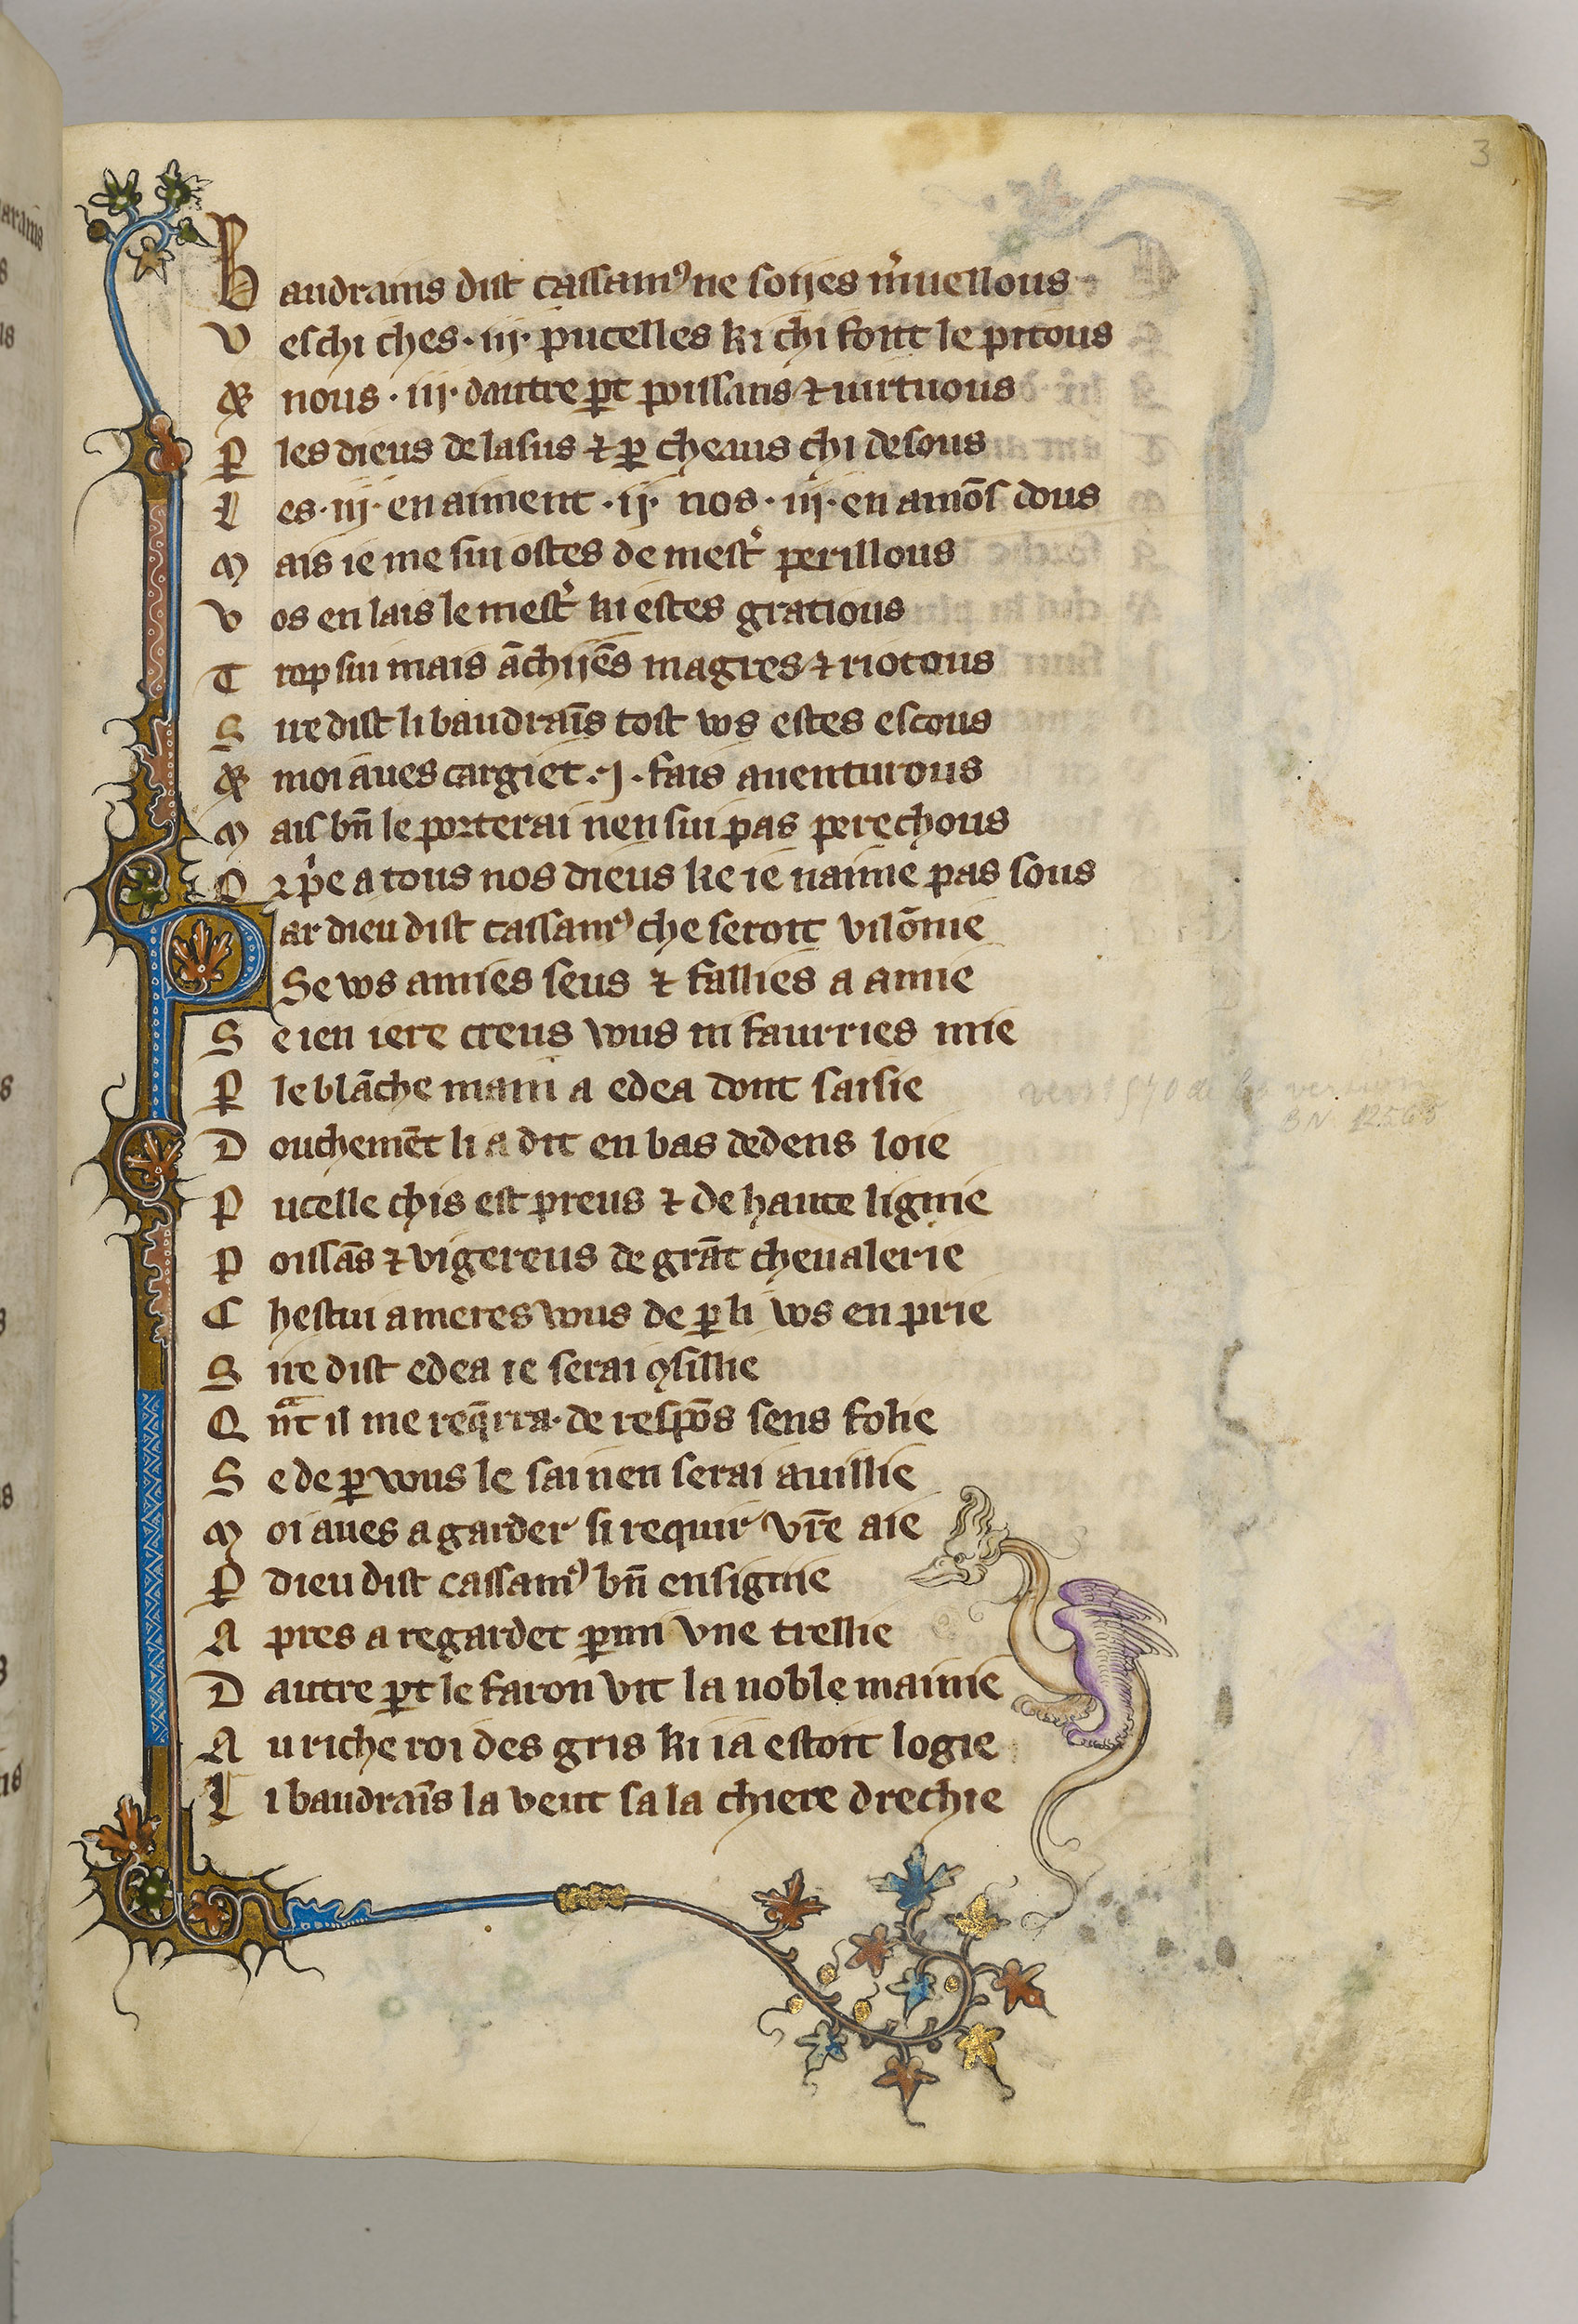 3
Baudrains dist cassamꝯ ne soijes mͥuellous
Ves chi ches ·iij· pucelles ki chi font le pitous
Et nous ·iij· dautre ꝑt poissans ⁊ uirtuous
Ꝑ les dieus de lasus ⁊ ꝑ cheaus chi desous
Les ·iij· en aiment ·ij· nos ·iij· en amōs dous
Mais ie me sui ostes de mestͥ perillous
Vos en lais le mestͥ ki estes gratious
Trop sui mais āchijēs magres ⁊ riotous
Sire dist li baudraīs tost ws estes escous
Et moi aues cargiet ·j· fais auenturous
Mais bn̄ le porterai nen sui pas perechous
Or pͥe a tous nos dieus ke ie naime pas sous
Par dieu dist cassamꝯ che seroit vilōnie
Se ws amies seus ⁊ fallies a amie
Se ien iere creus wus ni faurries mie
Ꝑ le blāche main a edea dont saisie
Douchemēt li a dit en bas dedens loie
Pucelle chis est preus ⁊ de haute lignie
Poissās ⁊ vigereus de grāt cheualerie
Chestui ameres wus de ꝑ li ws en prie
Sire dist edea ie serai ꝯsillie
Qᵃnt il me req̄rra · de respōs sens folie
Se de ꝑ wus le sai nen serai auillie
Moi aues a garder si requir vr̄e aie
Ꝑ dieu dist cassamꝯ bn̄ ensignie
Apres a regardet ꝑmi vne trellie
Dautre ꝑt le faron vit la noble mainie
Au riche roi des gris ki ia estoit logie
Li baudraīs la veut sa la chiere drechie
BN 12565